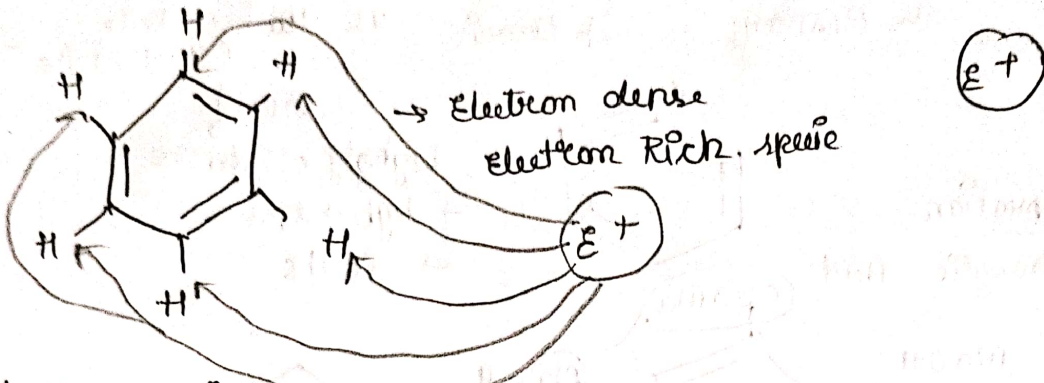 H
H
H
E+
→ Electron dense
Electron Rich. specie
E+
H
H
H